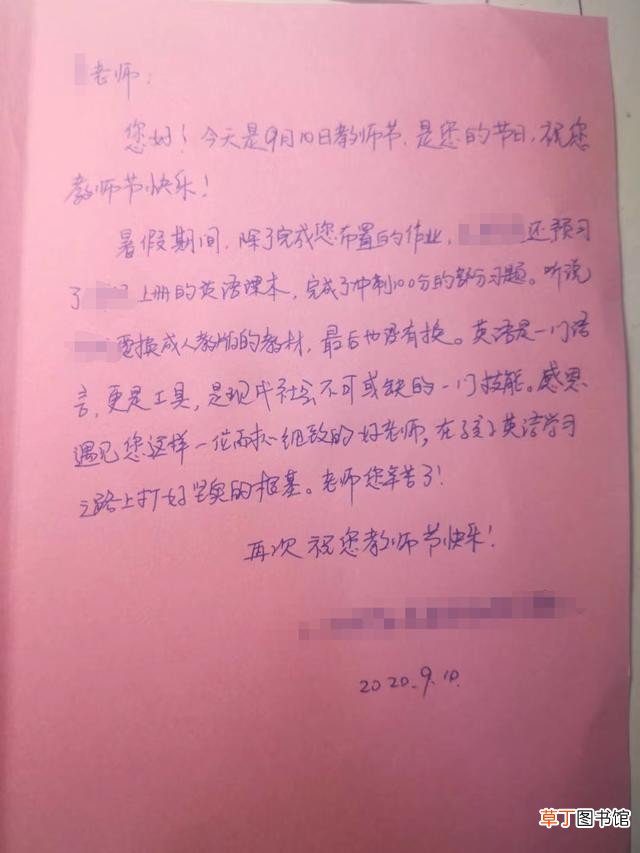 老师:
您好!今天是9月10日教师节,是您的节日,祝您
教师节快乐!
暑假期间,除了完成您布置的作业,还预习
了 上册的英语课本,完成了冲刺100分的部分习题。听说
要换成人教版的教材,最后也没有换。英语是一门语
言,更是工具,是现代社会不可或缺的一门技能。感恩
遇见您这样一位耐心细致的好老师,在孩子英语学习
之路上打好坚实的根基。老师您辛苦了!
再次祝您教师节快乐!
2020.9.10.
草丁图书馆